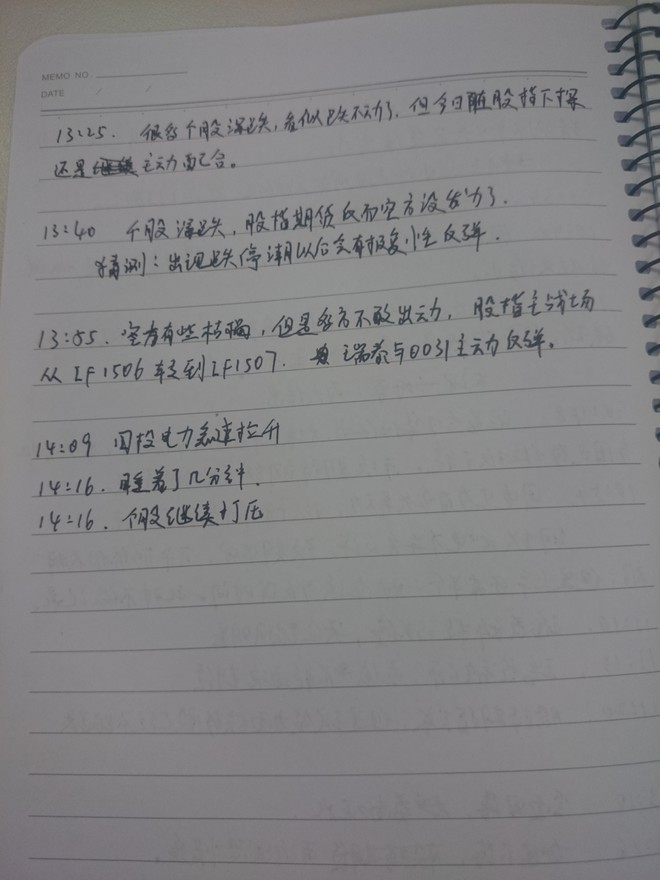 MEMO NO.
DATE / /
13:25. 很多个股深跌,看似跌不动了,但今日随股指下探
还是主动配合。
13:40 个股深跌,股指期债反而空方没发力了.
猜测:出现跌停潮以后会有报复性反弹.
13:55. 空方有些枯竭,但是多方不敢出动,股指主战场
从IF1506转到IF1507. 与0031主动反弹。
14:09 国投电力急速拉升
14:16. 睡着了几分钟.
14:16. 个股继续打压